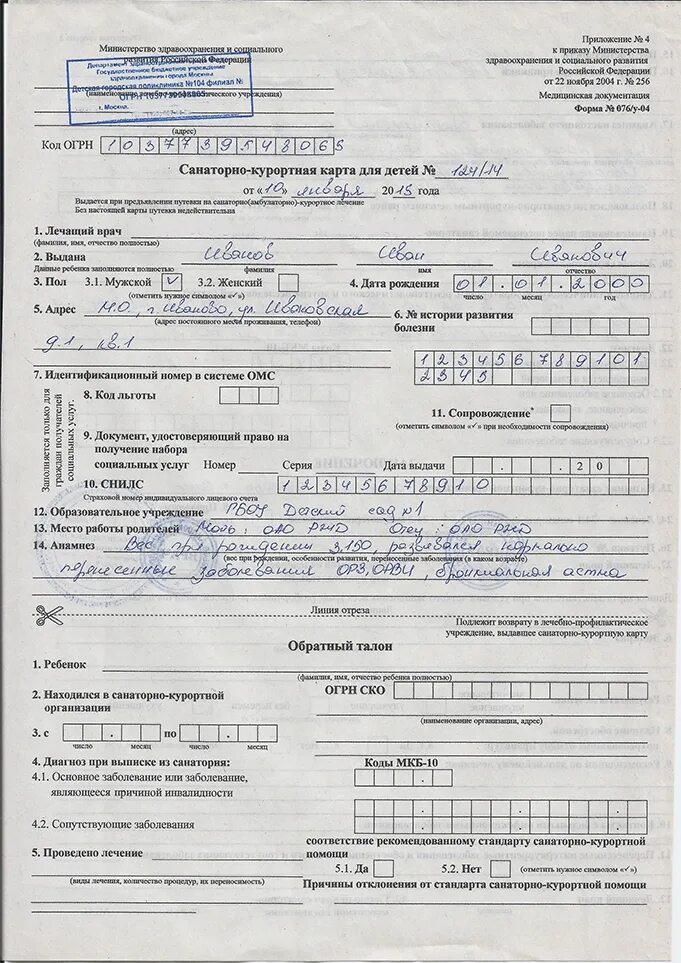 Приложение № 4
к приказу Министерства
здравоохранения и социального развития
Российской Федерации
от 22 ноября 2004 г. № 256
Медицинская документация
Форма № 076/у-04
Министерство здравоохранения и социального
развития Российской Федерации
Департамент здравоохранения
Государственное бюджетное учреждение
здравоохранения города Москвы
Детская городская поликлиника №104 филиал №
ОГРН
г. Москва
(наименование учреждения)
(адрес)
Код ОГРН 1037739548065
Санаторно-курортная карта для детей № 124/14
от «10» января 2015 года
Выдается при предъявлении путевки на санаторно(амбулаторно)-курортное лечение
Без настоящей карты путевка недействительна
1. Лечащий врач
(фамилия, имя, отчество полностью)
2. Выдана Иванов Иван Иванович
Данные ребенка заполняются полностью фамилия имя отчество
3. Пол 3.1. Мужской V 3.2. Женский 4. Дата рождения 01.01.2000
(отметить нужное символом «✓») число месяц год
5. Адрес М.О., г. Иваново, ул. Ивановская
(адрес постоянного места проживания, телефон)
д.1, кв.1
6. № истории развития
болезни
7. Идентификационный номер в системе ОМС 1234567891012345
Заполняется только для
граждан получателей
социальных услуг.
8. Код льготы
11. Сопровождение
(отметить символом «✓» при необходимости сопровождения)
9. Документ, удостоверяющий право на
получение набора
социальных услуг Номер Серия Дата выдачи . . 20
10. СНИЛС 12345678910
Страховой номер индивидуального лицевого счета
12. Образовательное учреждение ГБОУ Детский сад №1
13. Место работы родителей Мать: ОАО РЖД Отец: ОАО РЖД
14. Анамнез Вес при рождении 3,150, развивался нормально
(вес при рождении, особенности развития, перенесенные заболевания (в каком возрасте)
перенесенные заболевания ОРЗ, ОРВИ, бронхиальная астма
Линия отреза
Подлежит возврату в лечебно-профилактическое
учреждение, выдавшее санаторно-курортную карту
Обратный талон
1. Ребенок
(фамилия, имя, отчество ребенка полностью)
2. Находился в санаторно-курортной
организации
ОГРН СКО
(наименование организации, адрес)
3. с . по .
число месяц число месяц
4. Диагноз при выписке из санатория: Коды МКБ-10
4.1. Основное заболевание или заболевание,
являющееся причиной инвалидности
4.2. Сопутствующие заболевания
5. Проведено лечение
(виды лечения, количество процедур, их переносимость)
соответствие рекомендованному стандарту санаторно-курортной
помощи
5.1. Да 5.2. Нет (отметить нужное символом «✓»)
Причины отклонения от стандарта санаторно-курортной помощи